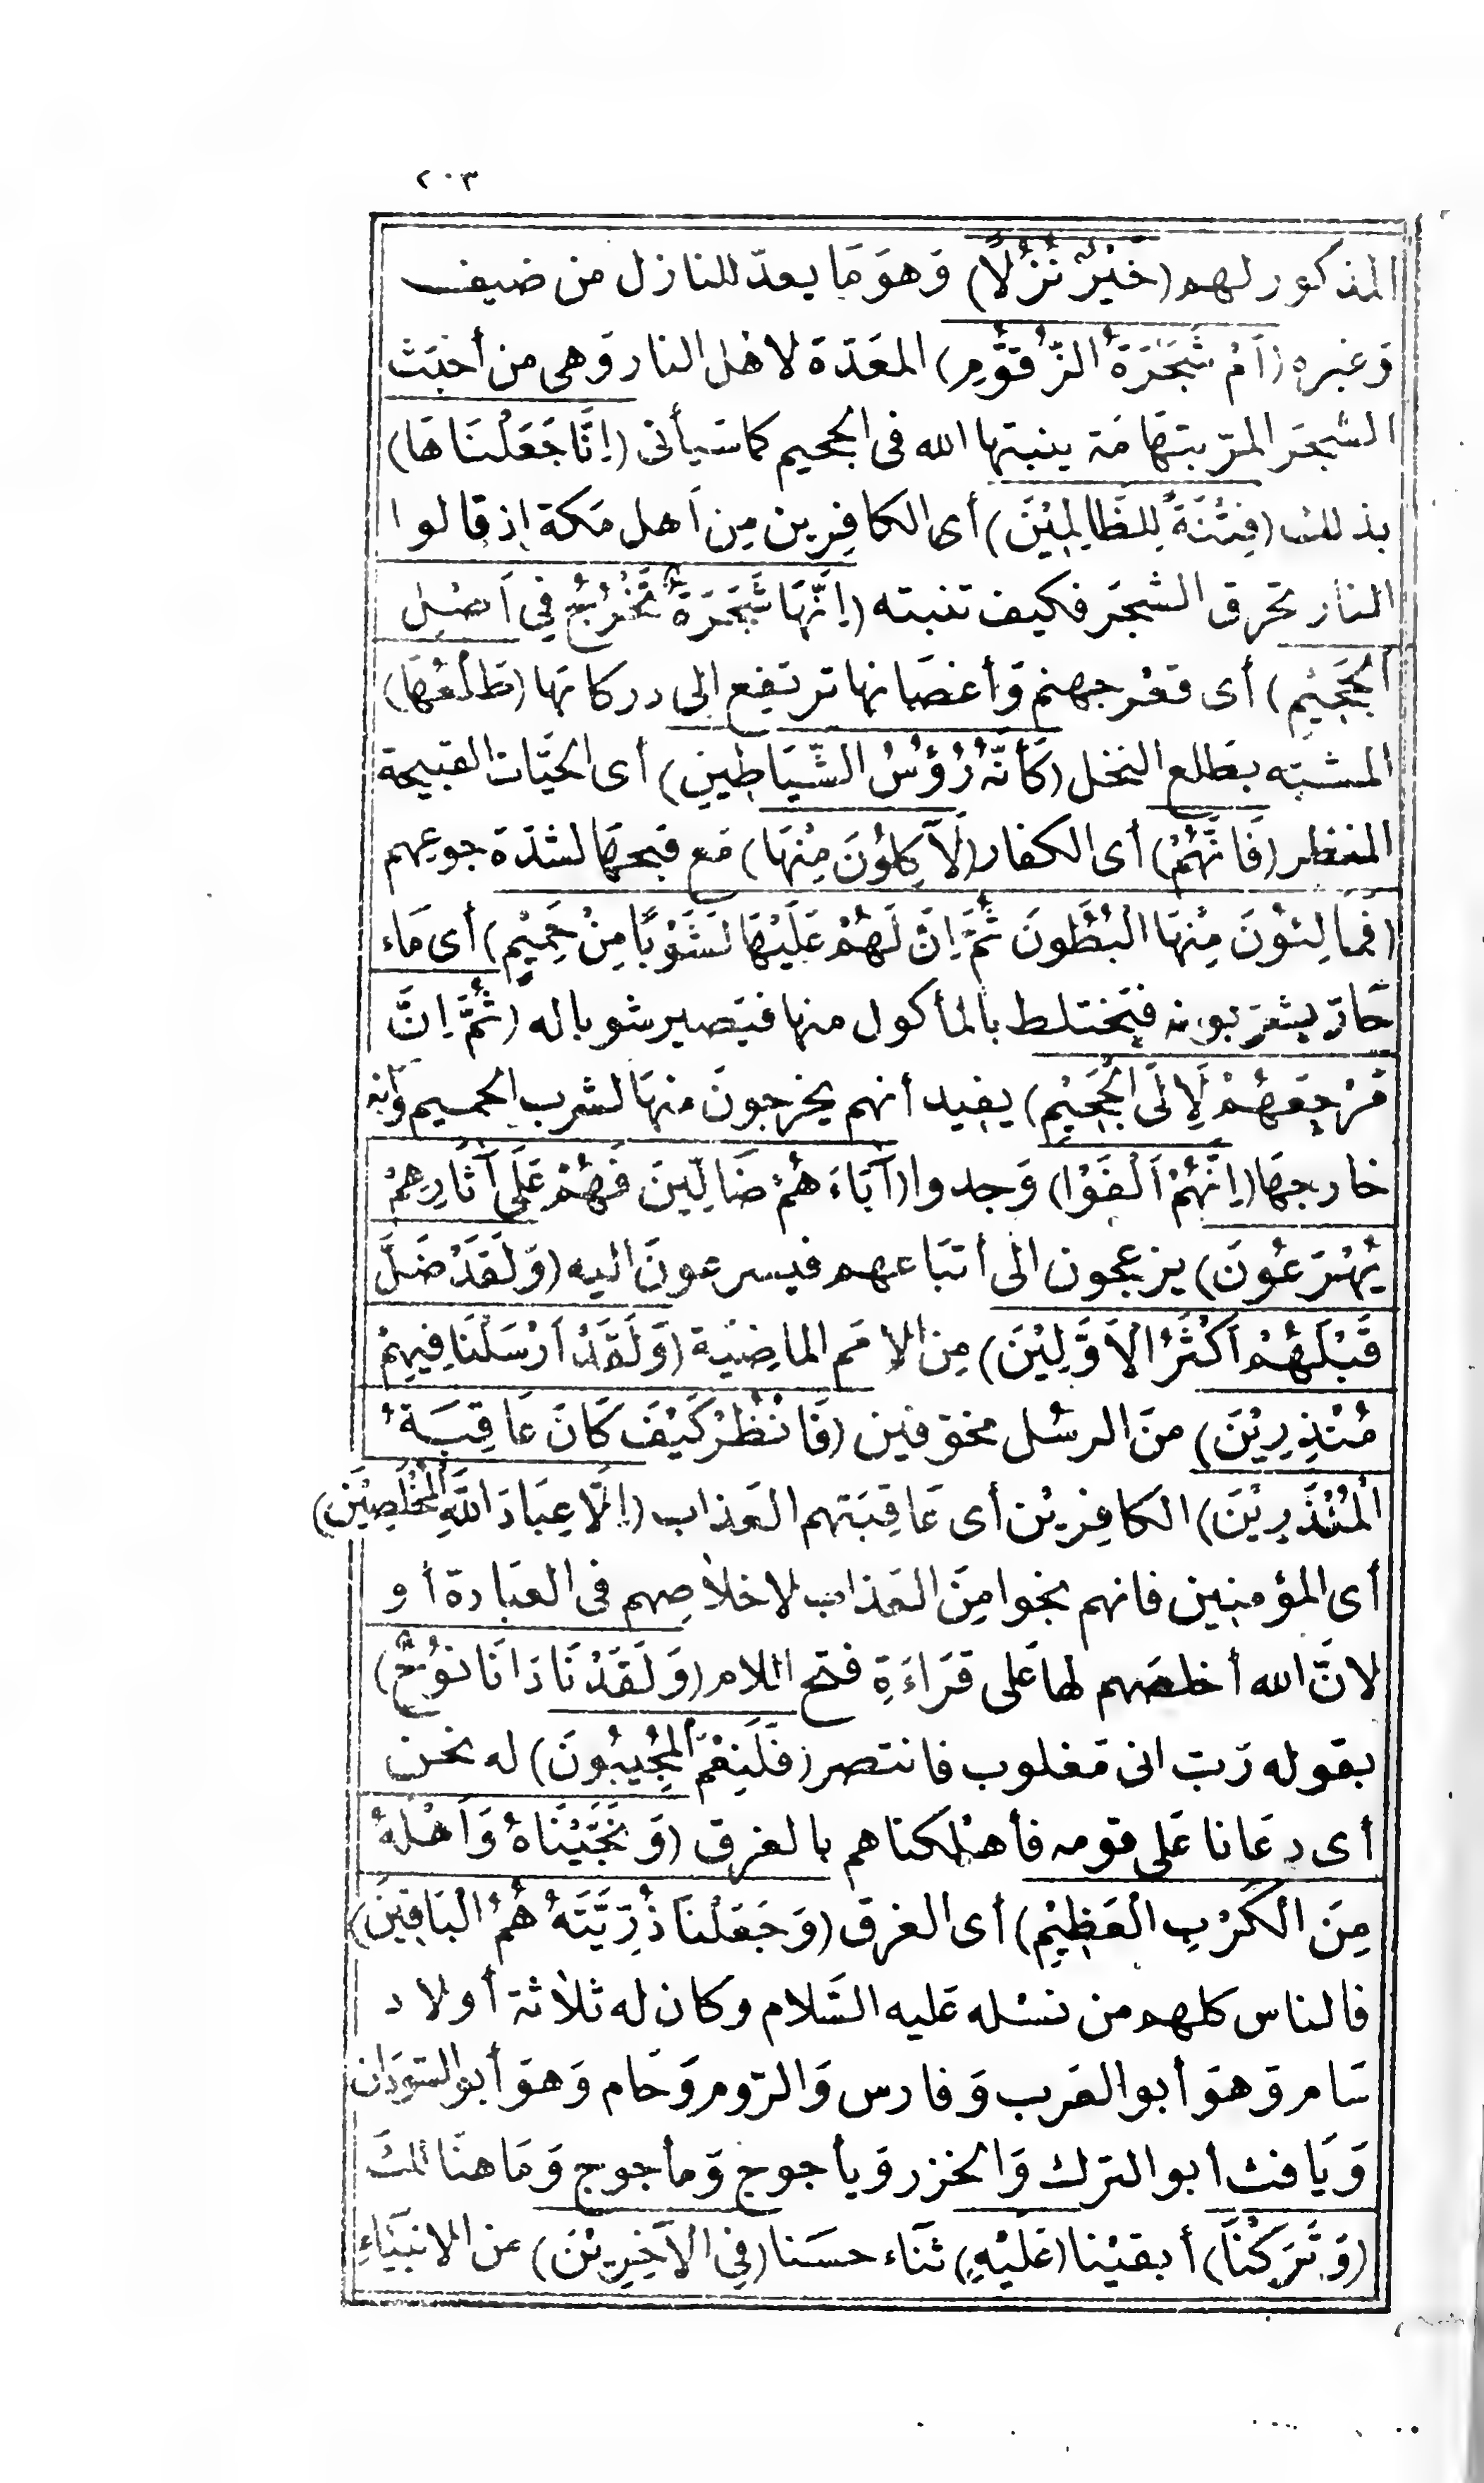 ٢٠٣
المذكور لهم (خَيْرٌ نُزُلًا) وَهوَ مَا يعدّ للنازل من ضيف
وَغيره (اَمْ شَجَرَةُ الزَّقُّومِ) المعَدّة لاهل النار وَهى من أخبَث
الشجَر المرّ بتهَامَة ينبتها الله فى الجحيم كما سَيأتى (اِنَّا جَعَلْنَاهَا)
بذلك (فِتْنَةً لِلظَّالِمِيْنَ) أى الكافِرين مِن اَهل مَكة إذ قالوا
النار تحرق الشجَر فكيف تنبته (اِنَّهَا شَجَرَةٌ تَخْرُجُ فِي اَصْلِ
الْجَحِيْمِ) أى قعْر جهنم وَأغصَانها ترتفِع إلى دركاتهَا (طَلْعُهَا)
المشبّه بطَلع النخل (كَأنَّهُ رُؤُسُ الشَّيَاطِينِ) أى الحَيّات القبيحة
المنظر (فَاِنَّهُمْ) أى الكفار (لَآكِلُوْنَ مِنْهَا) مَع قبحهَا لشدّة جوعِهم
(فَمَالِئُوْنَ مِنْهَا الْبُطُونَ ثُمَّ اِنَّ لَهُمْ عَلَيْهَا لَشَوْبًا مِنْ حَمِيْمٍ) أى مَاء
حَارّ يشرَبونه فيَختلط بالمأكول منها فيَصير شوبا له (ثُمَّ اِنَّ
مَرْجِعَهُمْ لَاِلَى الْجَحِيْمِ) يفيد أنهم يخرجونَ منهَا لشرب الحميم وَأنه
خارجهَا (اِنَّهُمْ اَلْفَوْا) وَجدوا (آبَاءَهُمْ ضَالِّينَ فَهُمْ عَلَى آثَارِهِمْ
يُهْرَعُونَ) يزعجون الى أتبَاعهم فيسرعونَ اليه (وَلَقَدْ ضَلَّ
قَبْلَهُمْ اَكْثَرُ الْاَوَّلِيْنَ) مِن الامَم الماضِيَة (وَلَقَدْ اَرْسَلْنَا فِيهِمْ
مُنْذِرِيْنَ) منَ الرسُل مخوّفين (فَانْظُرْ كَيْفَ كَانَ عَاقِبَةُ
الْمُنْذَرِيْنَ) الكافِريْن أى عَاقِبَتهم العَذاب (اِلَّا عِبَادَ اللَّهِ الْمُخْلَصِيْنَ)
أى المؤمنين فانهم نجوا مِنَ العَذاب لاخلاصِهم فى العبَادة أو
لانَّ الله أخلصَهم لها عَلى قرَاءَةِ فتح اللام (وَلَقَدْ نَادَانَا نُوْحٌ)
بقوله رَبّ انى مَغلوب فانتصر (فَلَنِعْمَ الْمُجِيْبُونَ) له نحن
أى دعَانا عَلى قومه فأهْلكناهم بالغرق (وَنَجَّيْنَاهُ وَاَهْلَهُ
مِنَ الْكَرْبِ الْعَظِيْمِ) أى الغرق (وَجَعَلْنَا ذُرِّيَّتَهُ هُمُ الْبَاقِيْنَ)
فالناس كلهم من نسْله عَليه السَّلام وكان له ثلاثة أولاد
سَام وَهوَ أبو العَرب وَفارس وَالرّوم وَحَام وَهوَ أبو السّودَان
وَيَافث أبو الترك وَالخزر وَيأجوج وَمأجوج وَمَا هنالك
(وَتَرَكْنَا) أبقيْنا (عَلَيْهِ) ثنَاء حسَنا (فِي الْآخِرِيْنَ) من الانبيَاءِ